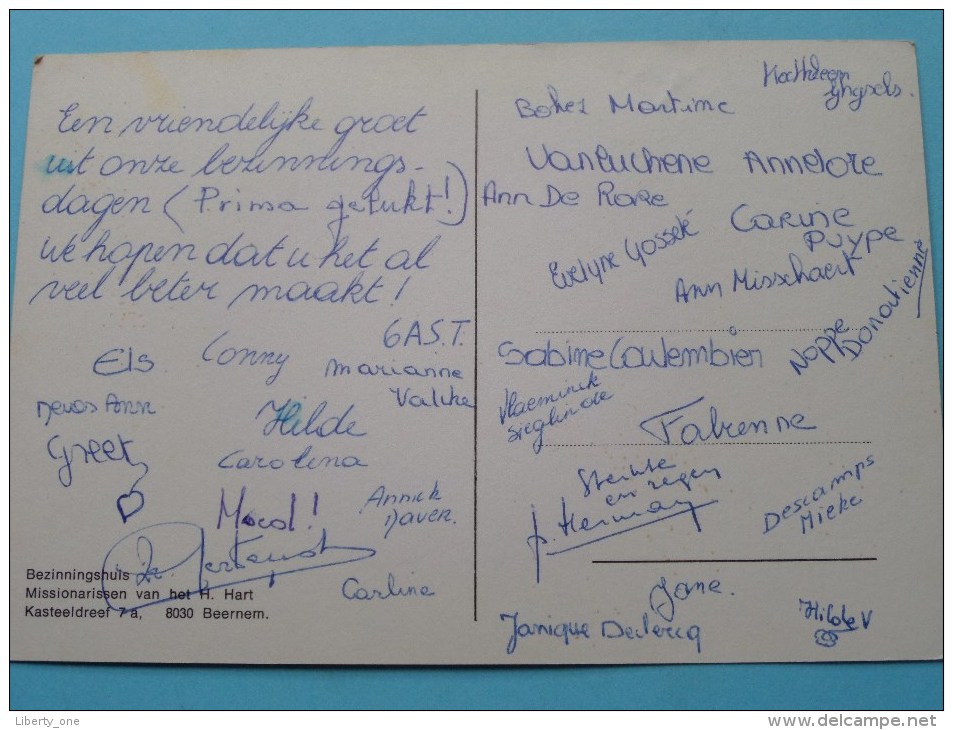 Een vriendelijke groet
uit onze bezinnings-
dagen (Prima gelukt!)
We hopen dat u het al
veel beter maakt!
GAS.T.
Els Conny Marianne
Valcke
Devos Ann
Hilde
Greet
Carolina
Annick
Moed!
Caroline
Bezinningshuis
Missionarissen van het H. Hart
Kasteeldreef 7a, 8030 Beernem.
Kathleen
Ghysels.
Martine
Annelore
Ann De
Evelyne
Carine
Puype
Ann Misschaert
Noppe
Donatienne
Sabine Coulembier
Vlaeminck
Sieglinde
Fabienne
Sterkte
en zegen
Descamps
Mieke
Jane.
Janique Declercq
Hilde V
Liberty_one
http://www.delcampe.net